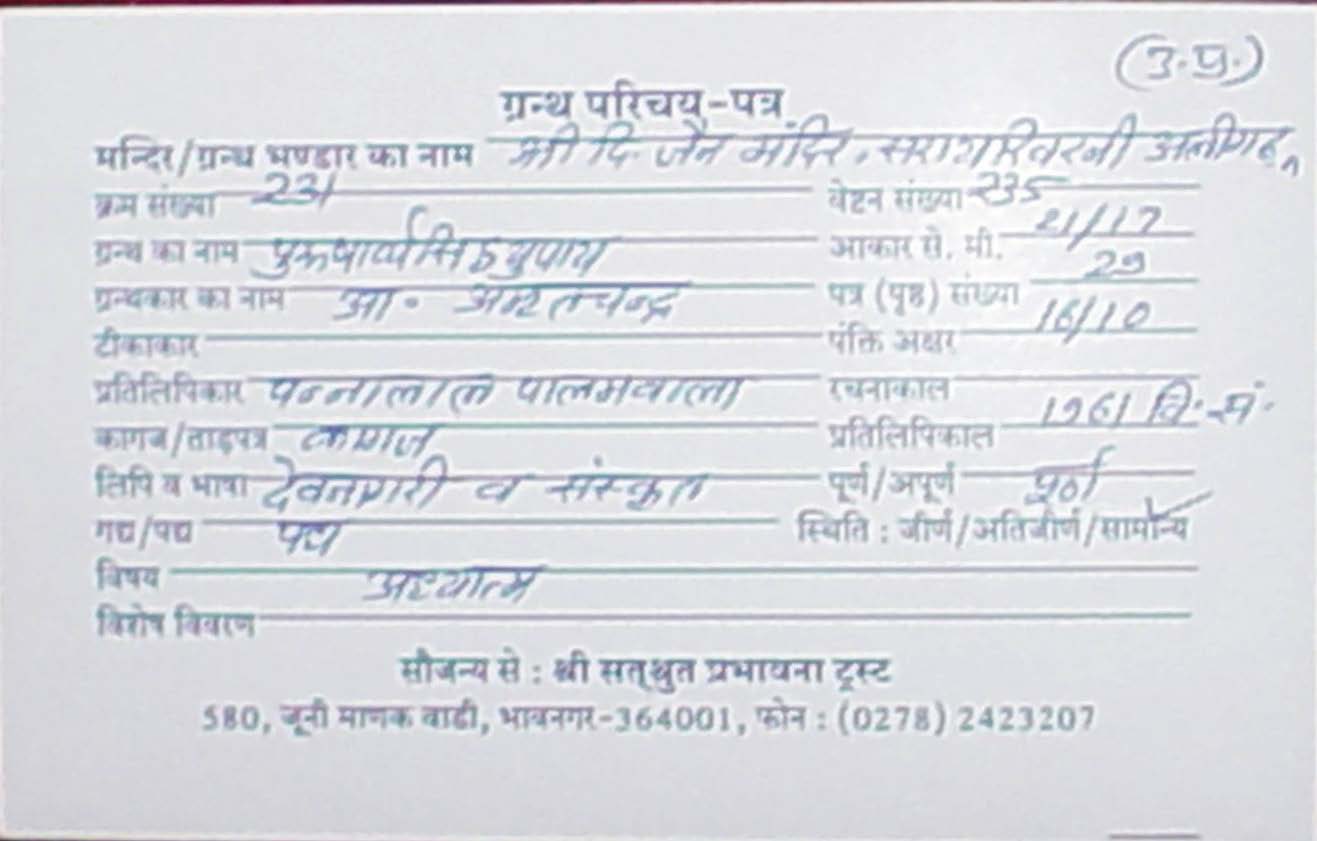 (उ.प्र.)
ग्रन्थ परिचय-पत्र
मन्दिर/ग्रन्थ भण्डार का नाम श्री दि. जैन मंदिर, अलीगढ़
क्रम संख्या 231 वेष्टन संख्या 235
ग्रन्थ का नाम पुरुषार्थसिद्धयुपाय आकार से. मी. 21/17
ग्रन्थकार का नाम आ. अमृतचन्द्र पत्र (पृष्ठ) संख्या 29
टीकाकार पंक्ति अक्षर 16/10
प्रतिलिपिकार पन्नालाल पालमवाला रचनाकाल
कागज/ताड़पत्र कागज प्रतिलिपिकाल 1961 वि. सं.
लिपि व भाषा देवनागरी व संस्कृत पूर्ण/अपूर्ण पूर्ण
गद्य/पद्य पद्य स्थिति : जीर्ण/अतिजीर्ण/सामान्य
विषय अध्यात्म
विशेष विवरण
सौजन्य से : श्री सत्श्रुत प्रभावना ट्रस्ट
580, जूनी माणक वाडी, भावनगर-364001, फोन : (0278) 2423207